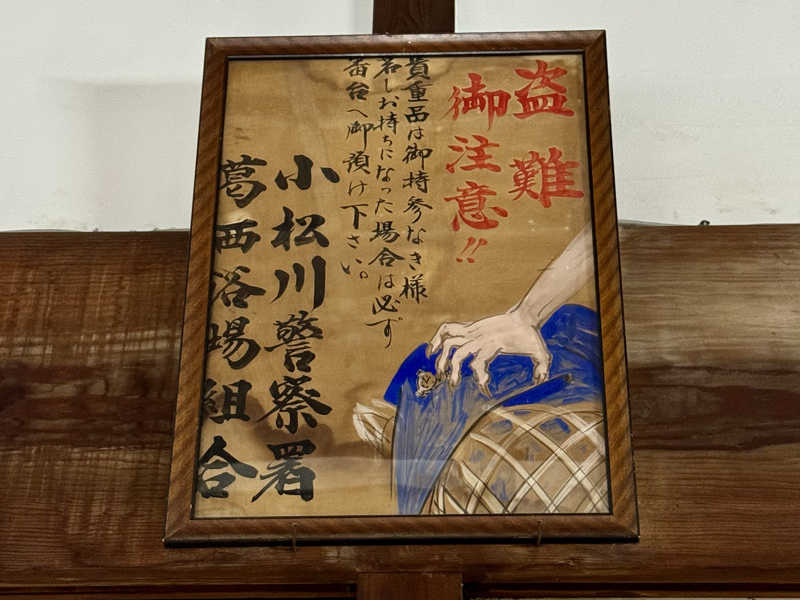 盗難
御注意!!
貴重品は御持参なき様
若しお持ちになった場合は必ず
番台へ御預け下さい。
小松川警察署
葛西浴場組合